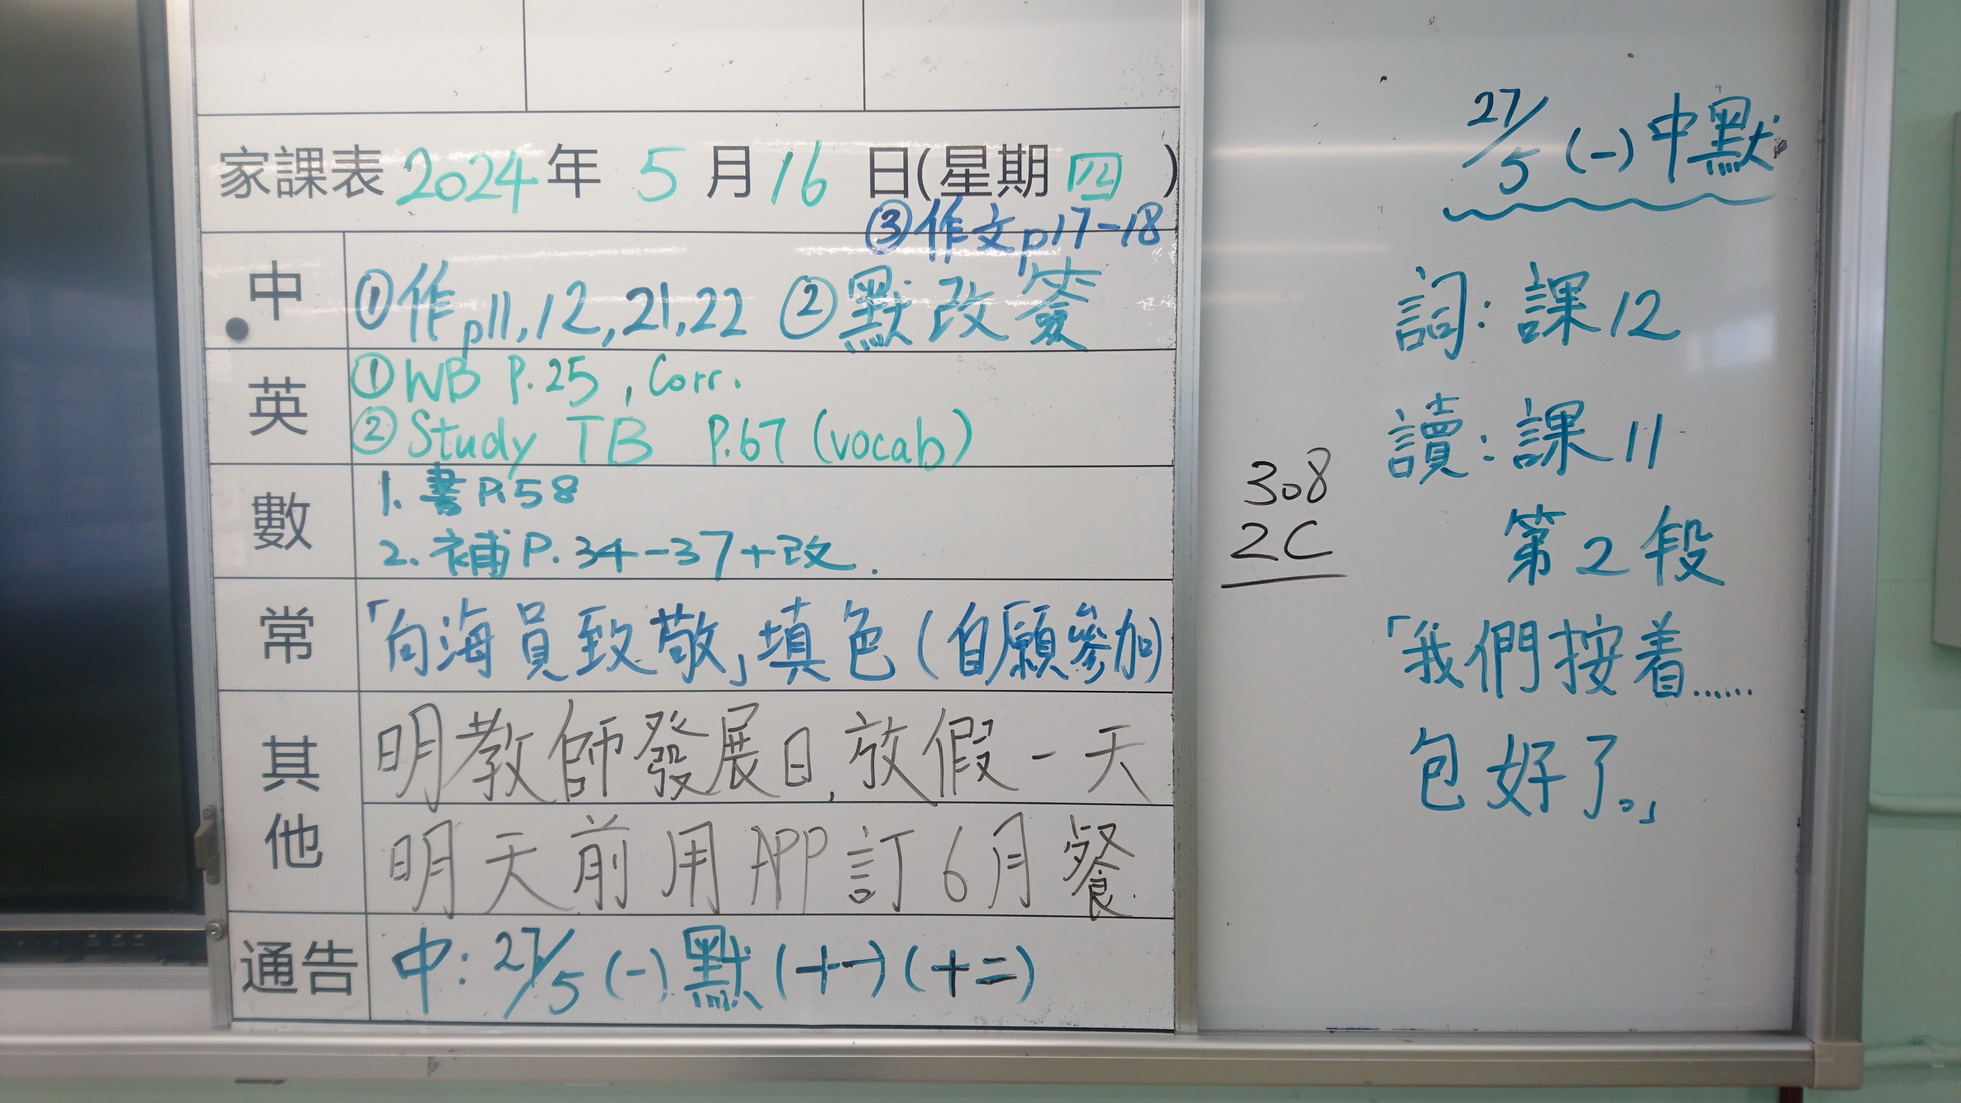 家課表 2024 年 5 月 16 日(星期 四 )
③作文p17-18
中 ①作p11,12,21,22 ②默改簽
英 ①WB P.25 , Corr.
②Study TB P.67 (vocab)
數 1. 書P.58
2. 補P.34-37+改.
常 「向海員致敬」填色(自願參加)
其他 明教師發展日,放假一天
明天前用APP訂6月餐
通告 中: 27/5 (一) 默 (十一) (十二)
308
2C
27/5 (一) 中默
詞: 課12
讀: 課11
第2段
「我們按着......
包好了。」